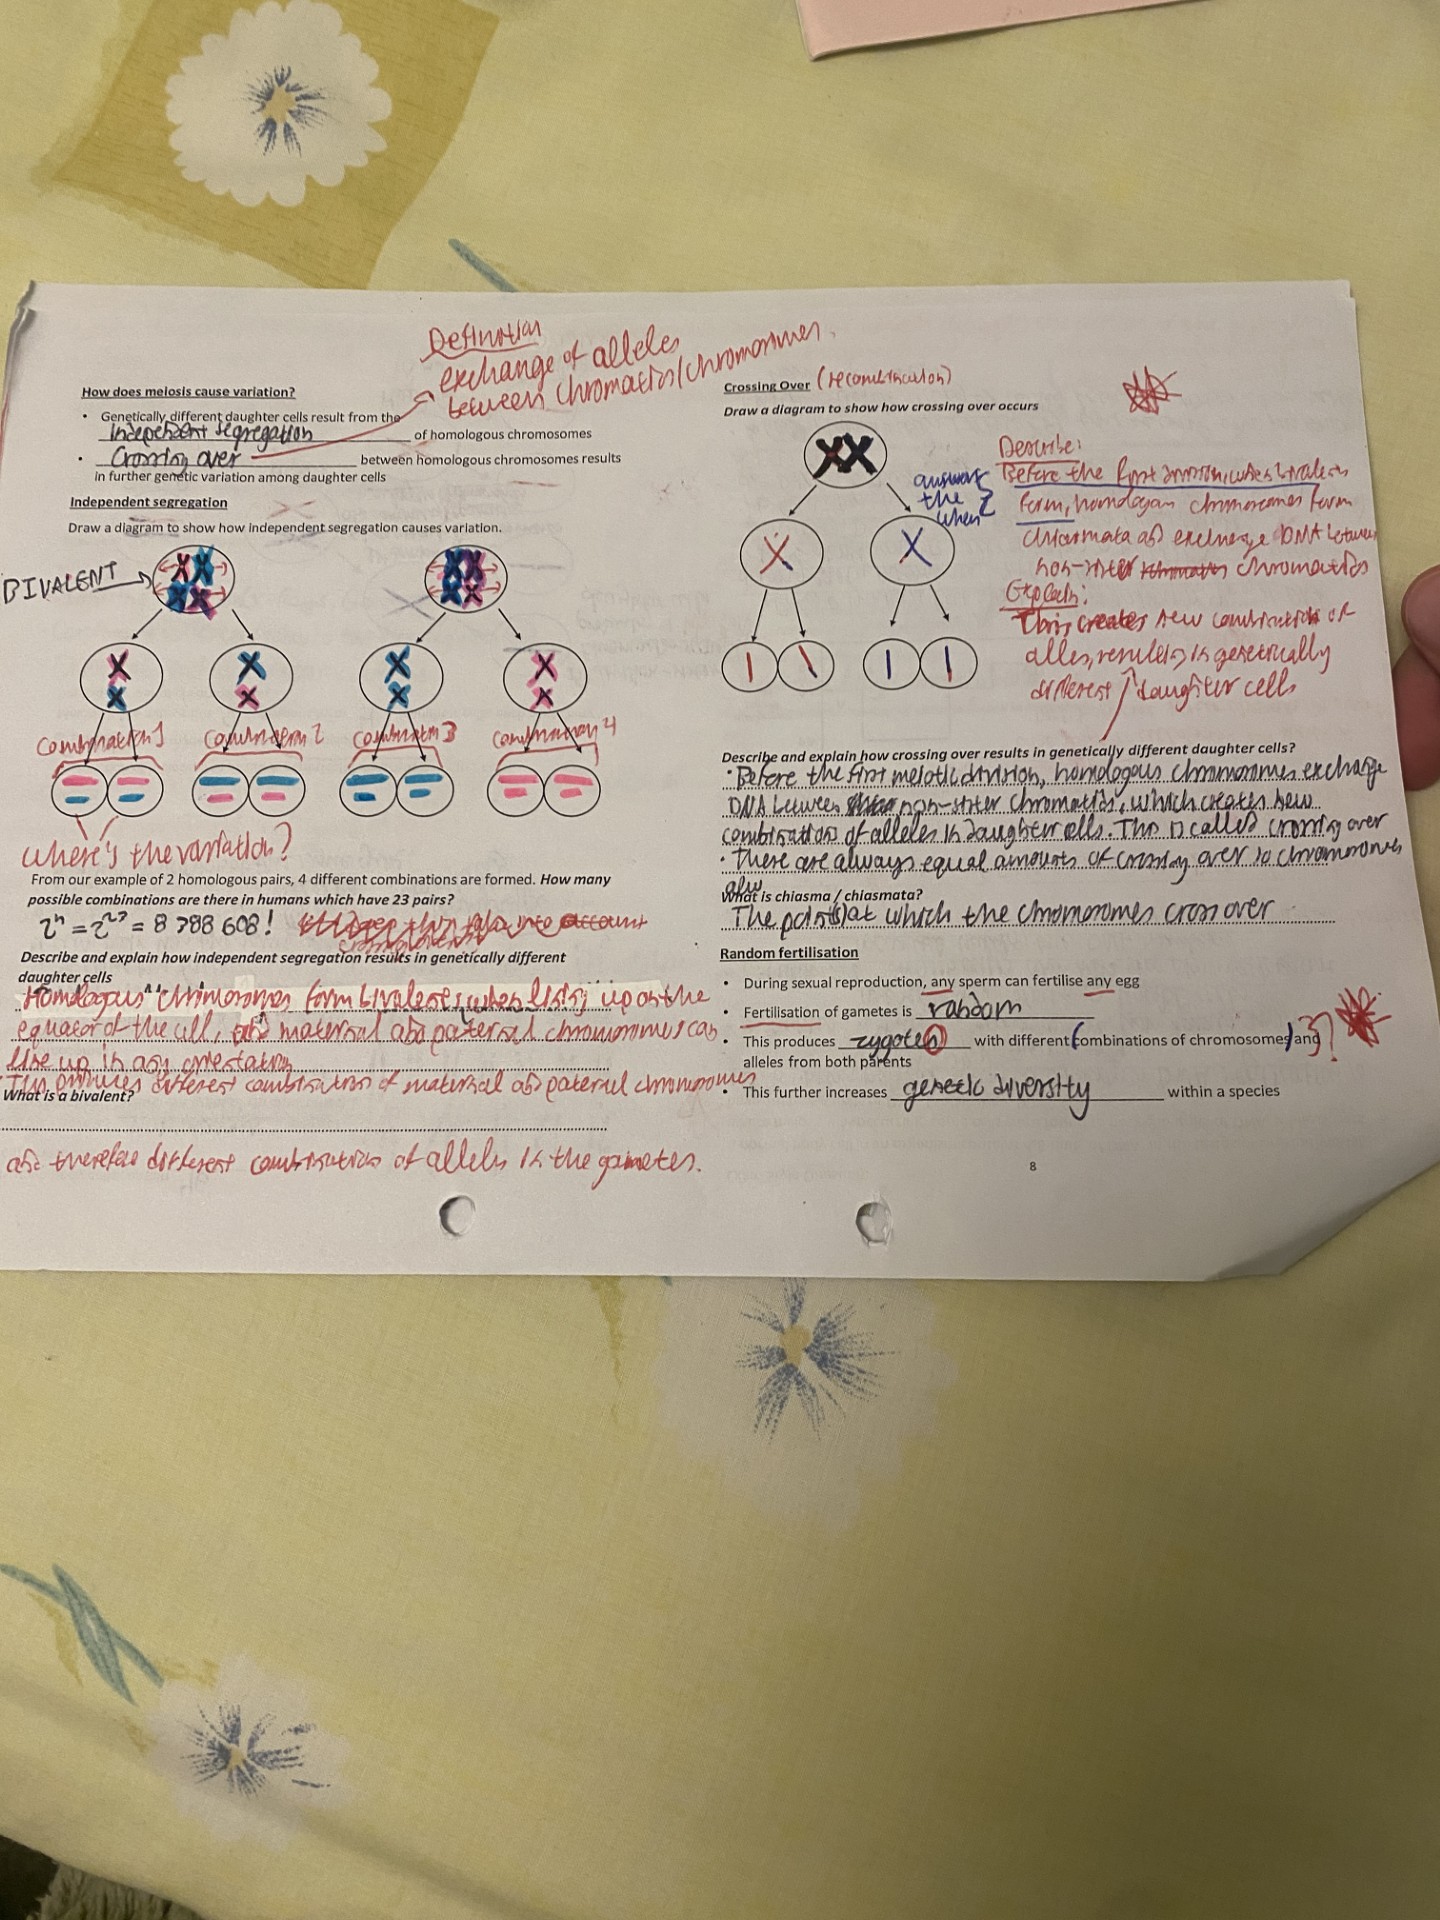 Definition
exchange of alleles
between chromatids/chromosomes.
How does meiosis cause variation?
• Genetically different daughter cells result from the
independent segregation of homologous chromosomes
• Crossing over between homologous chromosomes results
in further genetic variation among daughter cells
Independent segregation
Draw a diagram to show how independent segregation causes variation.
BIVALENT
combination 1
combination 2
combination 3
combination 4
where's the variation?
From our example of 2 homologous pairs, 4 different combinations are formed. How many
possible combinations are there in humans which have 23 pairs?
2ⁿ = 2²³ = 8 388 608!
Describe and explain how independent segregation results in genetically different
daughter cells
Homologous chromosomes form bivalents, when lining up on the
equator of the cell, maternal and paternal chromosomes can
line up in any orientation
• This produces different combination of maternal and paternal chromosomes
What is a bivalent?
and therefore different combinations of alleles in the gametes.
Crossing Over (recombination)
Draw a diagram to show how crossing over occurs
answers
the
when
Describe:
Before the first division, when bivalents
form, homologous chromosomes form
chiasmata and exchange DNA between
non-sister chromatids
Explain:
This creates new combination of
alleles, resulting in genetically
different daughter cells
Describe and explain how crossing over results in genetically different daughter cells?
• Before the first meiotic division, homologous chromosomes exchange
DNA between non-sister chromatids, which creates new
combinations of alleles in daughter cells. This is called crossing over
• There are always equal amounts of crossing over so chromosomes
What is chiasma / chiasmata?
The point(s) at which the chromosomes cross over
Random fertilisation
• During sexual reproduction, any sperm can fertilise any egg
• Fertilisation of gametes is random
• This produces zygotes with different (combinations of chromosomes) and }?
alleles from both parents
• This further increases genetic diversity within a species
8